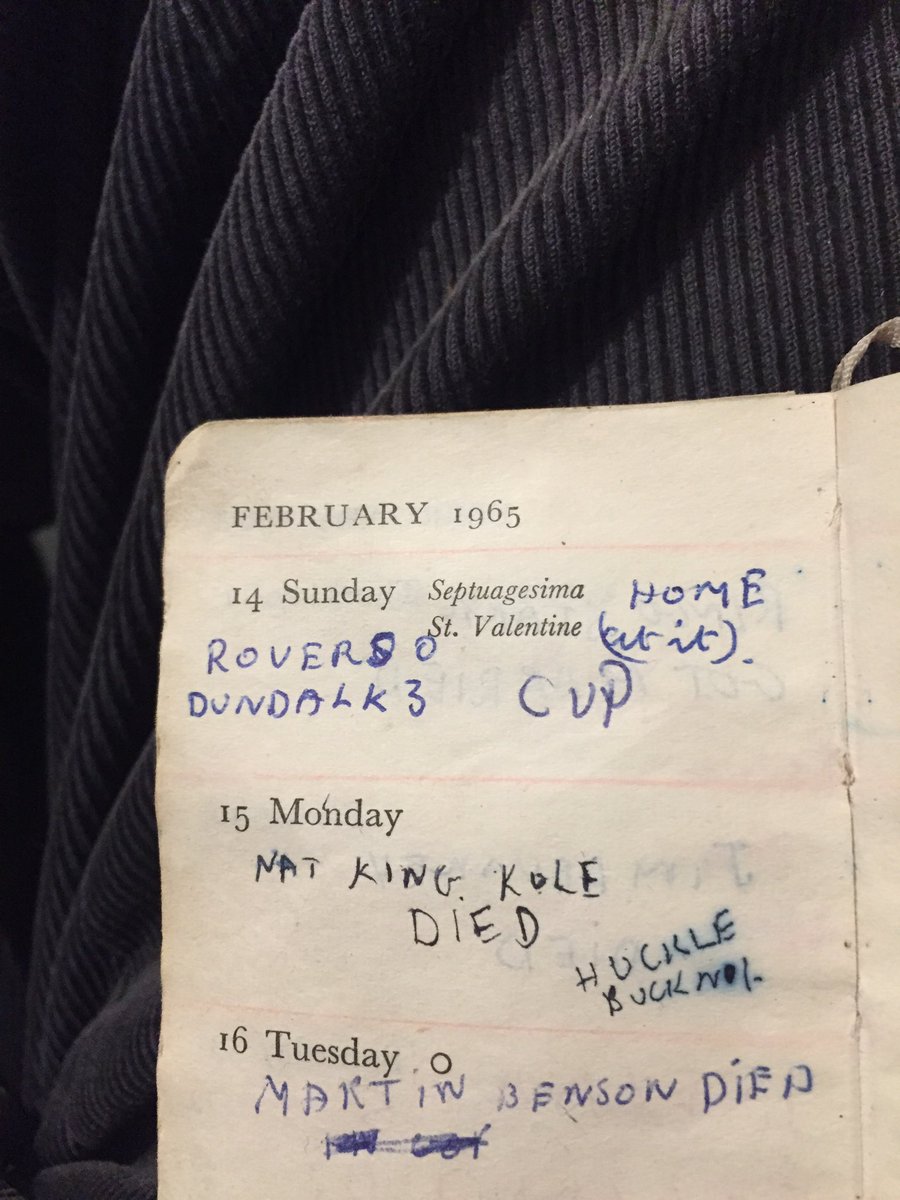 FEBRUARY 1965
14 Sunday Septuagesima HOME
St. Valentine (at it).
ROVERS 0
DUNDALK 3 CUP
15 Monday
NAT KING KOLE
DIED
HUCKLE
BUCK NO 1.
16 Tuesday O
MARTIN BENSON DIED